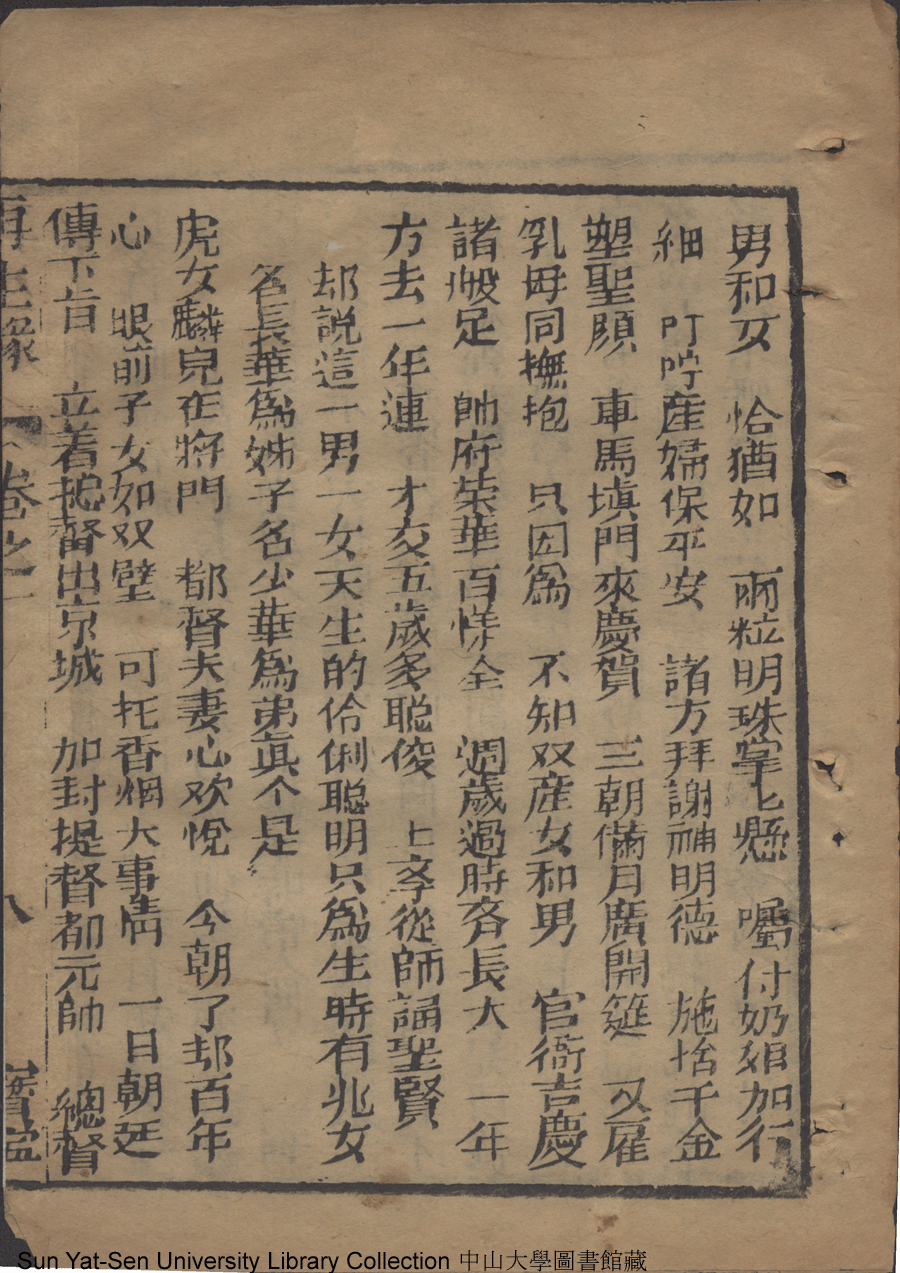 男和女　恰猶如　兩粒明珠掌上懸　囑付奶娘加行
細　叮嚀産婦保平安　諸方拜謝神明德　施捨千金
塑聖顏　車馬填門來慶賀　三朝滿月廣開筵　又雇
乳母同撫抱　只因爲　不知双産女和男　官衙吉慶
諸般足　帥府荣華百様全　週歲過時斉長大　一年
方去一年連　才交五歲多聪俊　上李從師誦聖賢
却說這一男一女天生的伶俐聪明只爲生時有兆女
名長華爲姊子名少華爲弟眞个是
虎女麟兒在將門　都督夫妻心欢悅　今朝了却百年
心　眼前子女如双璧　可托香烟大事情　一日朝廷
傳下旨　立着都督出京城　加封提督都元帥　總督
再生緣　卷之一　八
Sun Yat-Sen University Library Collection 中山大學圖書館藏